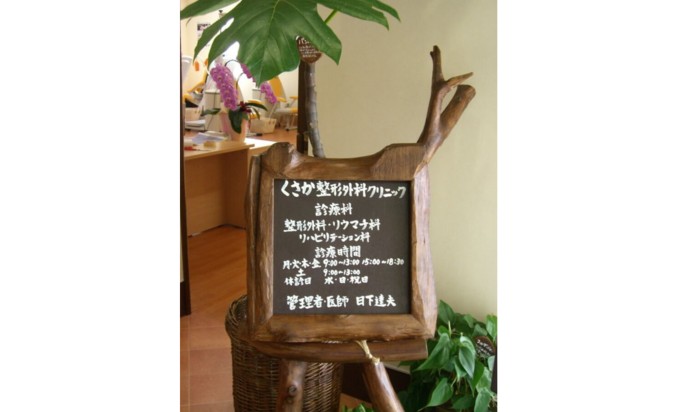 くさか整形外科クリニック
診療科
整形外科・リウマチ科
リハビリテーション科
診療時間
月・火・木・金 9:00~13:00 15:00~18:30
土 9:00~13:00
休診日 水・日・祝日
管理者・医師 日下達夫